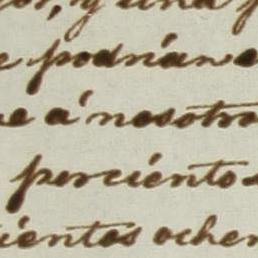 y una
podrían
á nosotro
perciento
cientos ochen